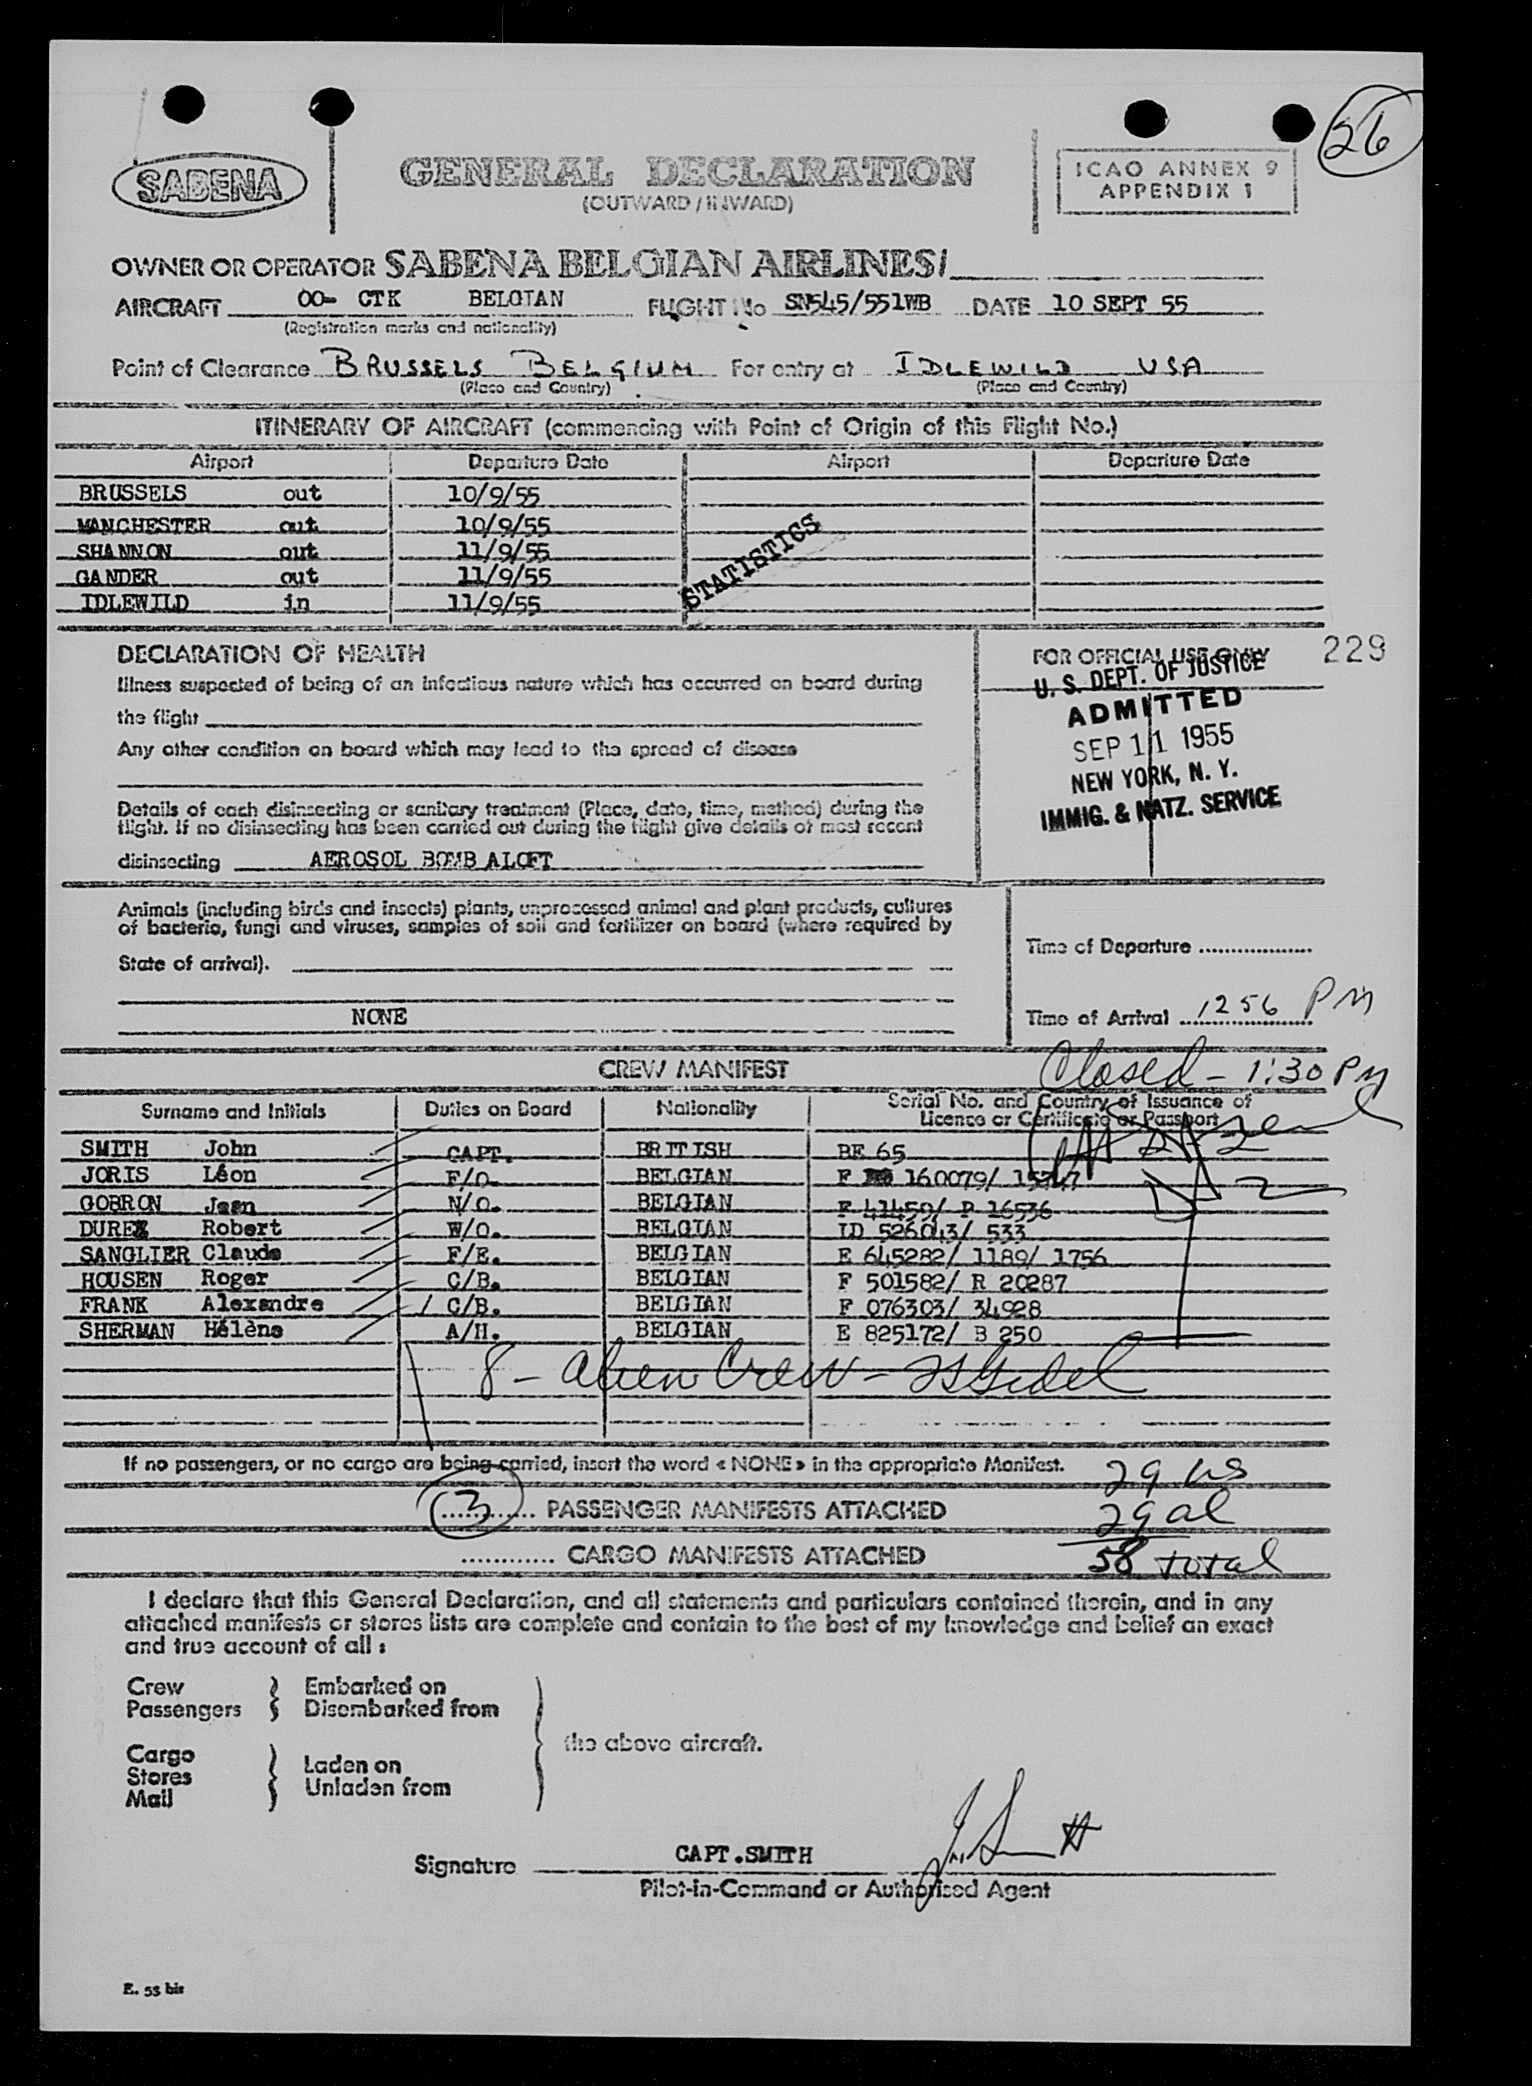 26
SABENA
GENERAL DECLARATION
(OUTWARD / INWARD)
ICAO ANNEX 9
APPENDIX 1
OWNER OR OPERATOR SABENA BELGIAN AIRLINES/
AIRCRAFT OO- CTK BELGIAN FLIGHT No SN545/551WB DATE 10 SEPT 55
(Registration marks and nationality)
Point of Clearance BRUSSELS BELGIUM For entry at IDLEWILD USA
(Place and Country) (Place and Country)
ITINERARY OF AIRCRAFT (commencing with Point of Origin of this Flight No.)
Airport Departure Date Airport Departure Date
BRUSSELS out 10/9/55
MANCHESTER out 10/9/55
SHANNON out 11/9/55
GANDER out 11/9/55
IDLEWILD in 11/9/55
STATISTICS
DECLARATION OF HEALTH
Illness suspected of being of an infectious nature which has occurred on board during
the flight
Any other condition on board which may lead to the spread of disease
Details of each disinsecting or sanitary treatment (Place, date, time, method) during the
flight. If no disinsecting has been carried out during the flight give details of most recent
disinsecting AEROSOL BOMB ALOFT
FOR OFFICIAL USE ONLY 229
U. S. DEPT. OF JUSTICE
ADMITTED
SEP 11 1955
NEW YORK, N. Y.
IMMIG. & NATZ. SERVICE
Animals (including birds and insects) plants, unprocessed animal and plant products, cultures
of bacteria, fungi and viruses, samples of soil and fertilizer on board (where required by
State of arrival).
NONE
Time of Departure
Time of Arrival 1256 PM
CREW MANIFEST
Closed - 1:30 PM
Surname and Initials Duties on Board Nationality Serial No. and Country of Issuance of
Licence or Certificate or Passport
SMITH John CAPT. BRITISH BE 65
JORIS Léon F/O. BELGIAN F 160079/
GOBRON Jean N/O. BELGIAN F 41459/ P 16536
DUREX Robert W/O. BELGIAN ID 526043/ 533
SANGLIER Claude F/E. BELGIAN E 645282/ 1189/ 1756
HOUSEN Roger C/B. BELGIAN F 501582/ R 20287
FRANK Alexandre C/B. BELGIAN F 076303/ 34928
SHERMAN Hélène A/H. BELGIAN E 825172/ B 250
8 - alien Crew -
If no passengers, or no cargo are being carried, insert the word « NONE » in the appropriate Manifest.
29 us
(3) PASSENGER MANIFESTS ATTACHED
29 al
CARGO MANIFESTS ATTACHED
58 total
I declare that this General Declaration, and all statements and particulars contained therein, and in any
attached manifests or stores lists are complete and contain to the best of my knowledge and belief an exact
and true account of all :
Crew Embarked on
Passengers Disembarked from
the above aircraft.
Cargo
Stores Laden on
Mail Unladen from
Signature CAPT.SMITH J. Smith
Pilot-in-Command or Authorised Agent
E. 53 bis